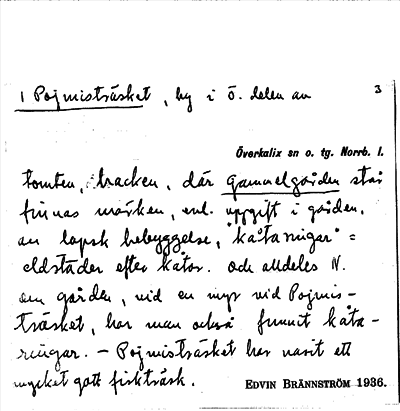 1 Pojmisträsket, by i ö. delen av 3
Överkalix sn o. tg. Norrb. l.
tomten, backen, där Gammelgården står
finnas märken, enl. uppgift i gården,
av lapsk bebyggelse, "kåtaringar" =
eldstäder efter kåtor. Och alldeles N.
om gården, vid en myr vid Pojmis-
träsket, har man också funnit kåta-
ringar. – Pojmisträsket har varit ett
mycket gott fiskträsk. EDVIN BRÄNNSTRÖM 1936.